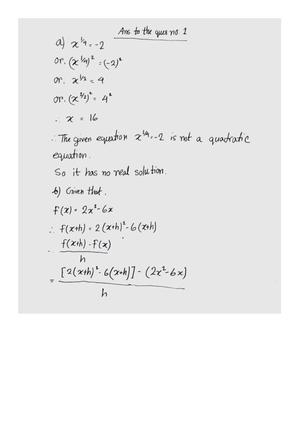 Ans to the ques no. 1
a) x^1/4 = -2
or. (x^1/4)² = (-2)²
or. x^1/2 = 4
or. (x^1/2)² = 4²
∴ x = 16
∴ The given equation x^1/4 = -2 is not a quadratic
equation.
So it has no real solution.
b) Given that,
f(x) = 2x² - 6x
∴ f(x+h) = 2(x+h)² - 6(x+h)
f(x+h) - f(x)
h
= [2(x+h)² - 6(x+h)] - (2x² - 6x)
h